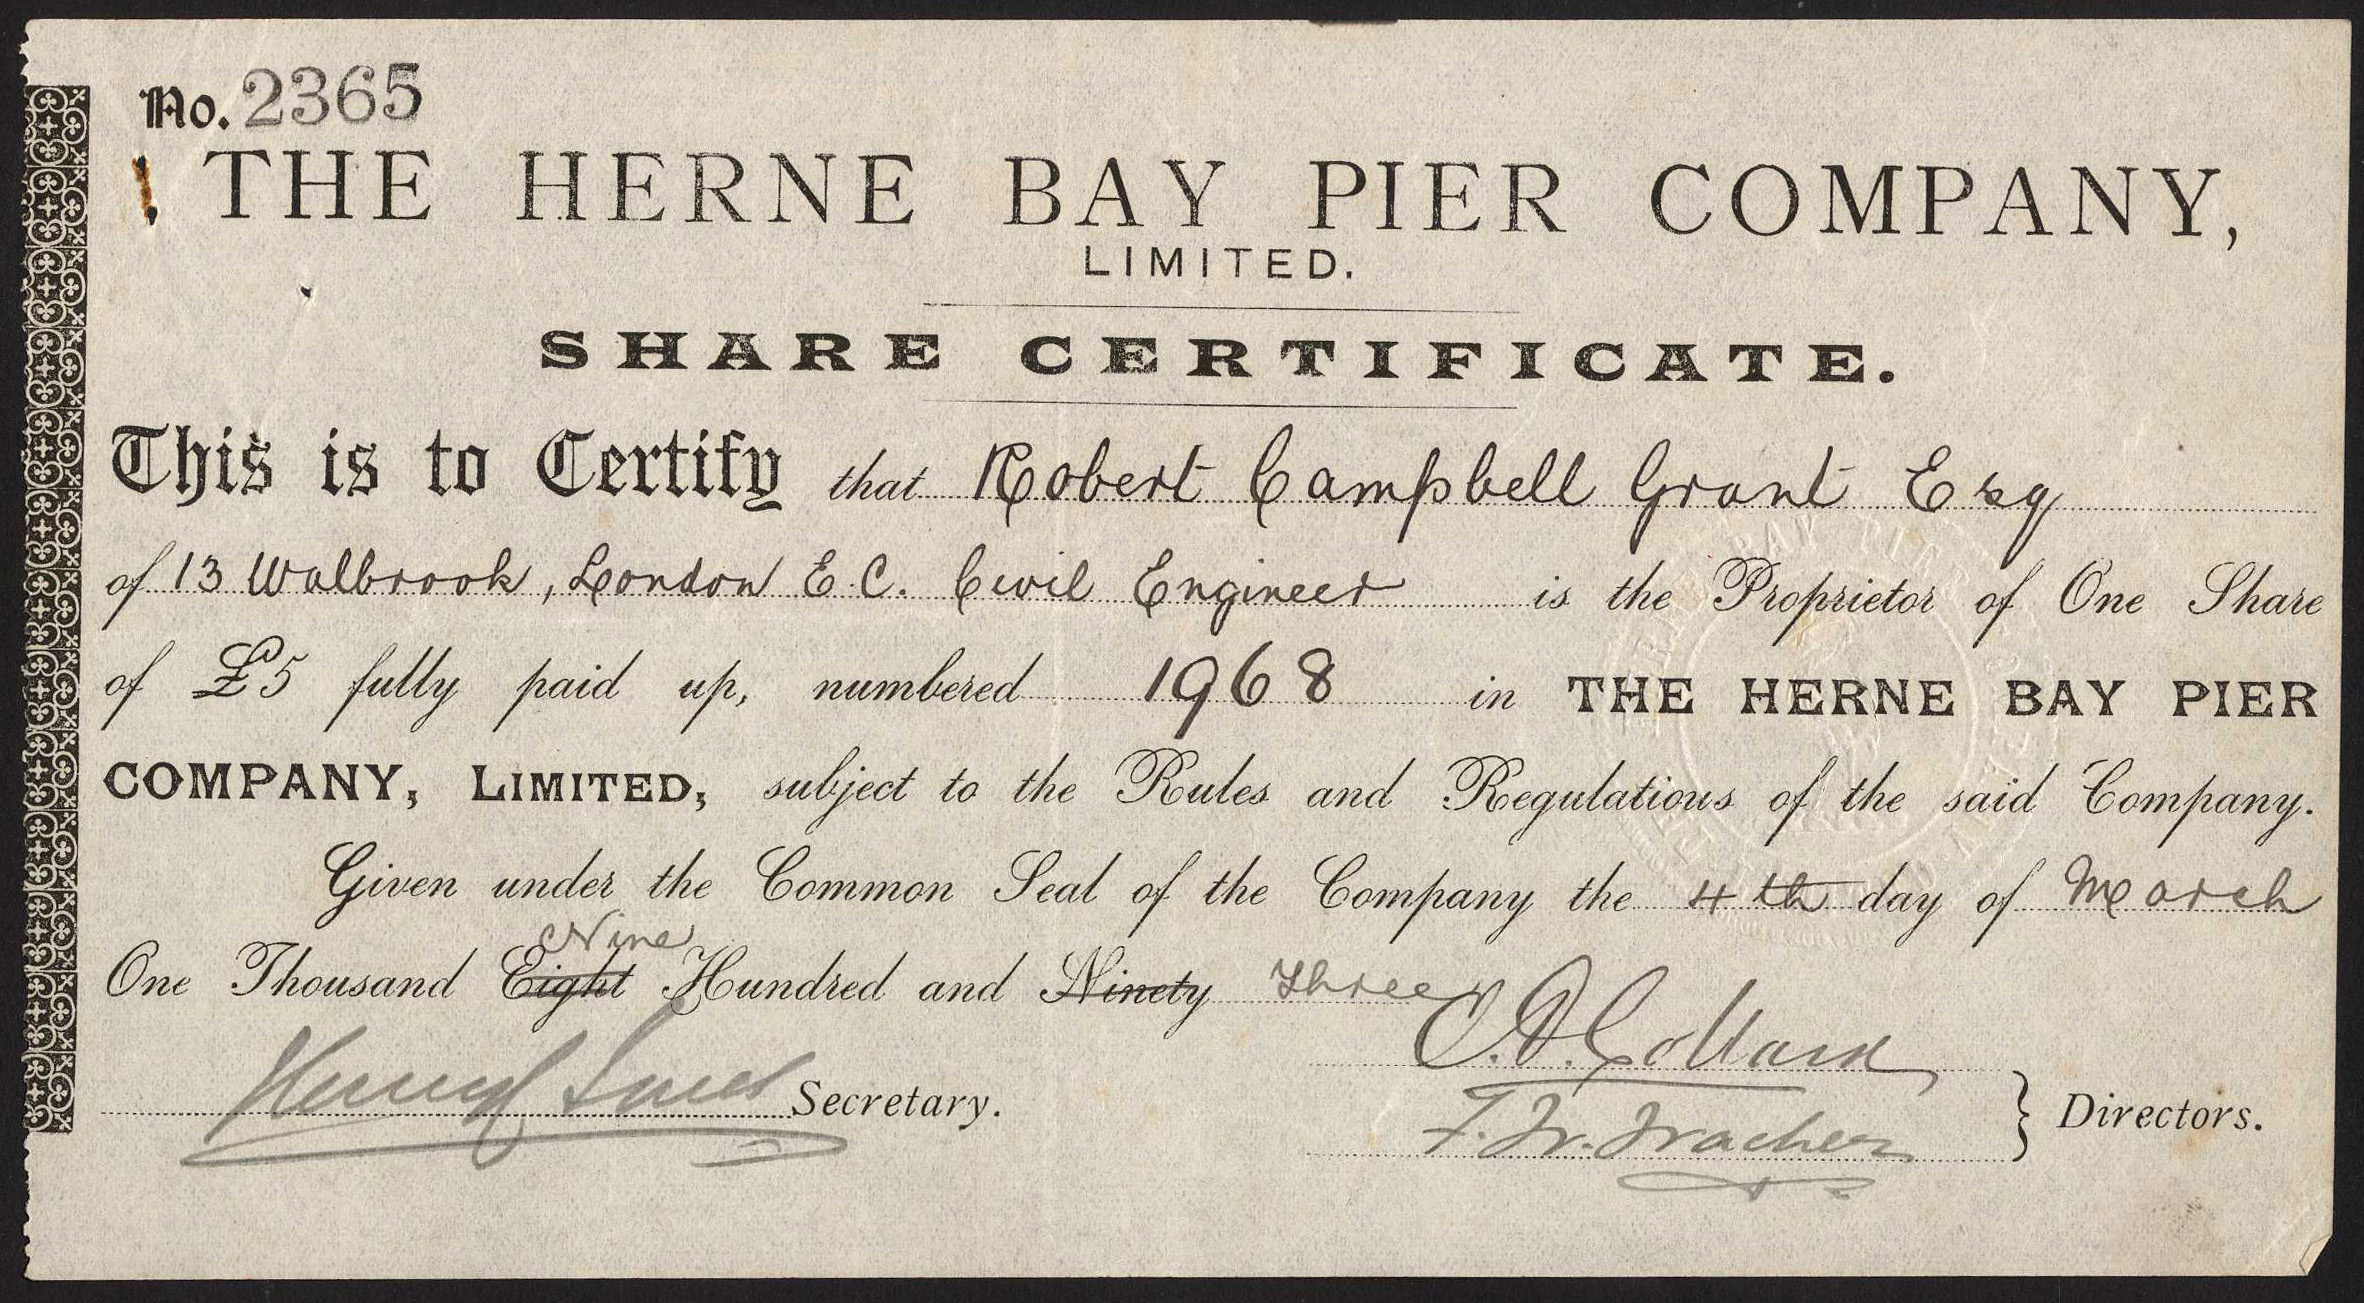 No. 2365
THE HERNE BAY PIER COMPANY,
LIMITED.
SHARE CERTIFICATE.
This is to Certify that Robert Campbell Grant Esq
of 13 Walbrook, London E.C. Civil Engineer is the Proprietor of One Share
of £5 fully paid up, numbered 1968 in THE HERNE BAY PIER
COMPANY, LIMITED, subject to the Rules and Regulations of the said Company.
Given under the Common Seal of the Company the 4th day of March
Nine
One Thousand Eight Hundred and Ninety Three
Collard
Secretary.
Directors.